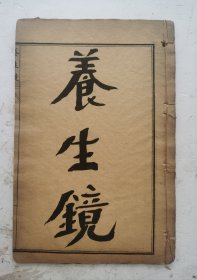 養生鏡